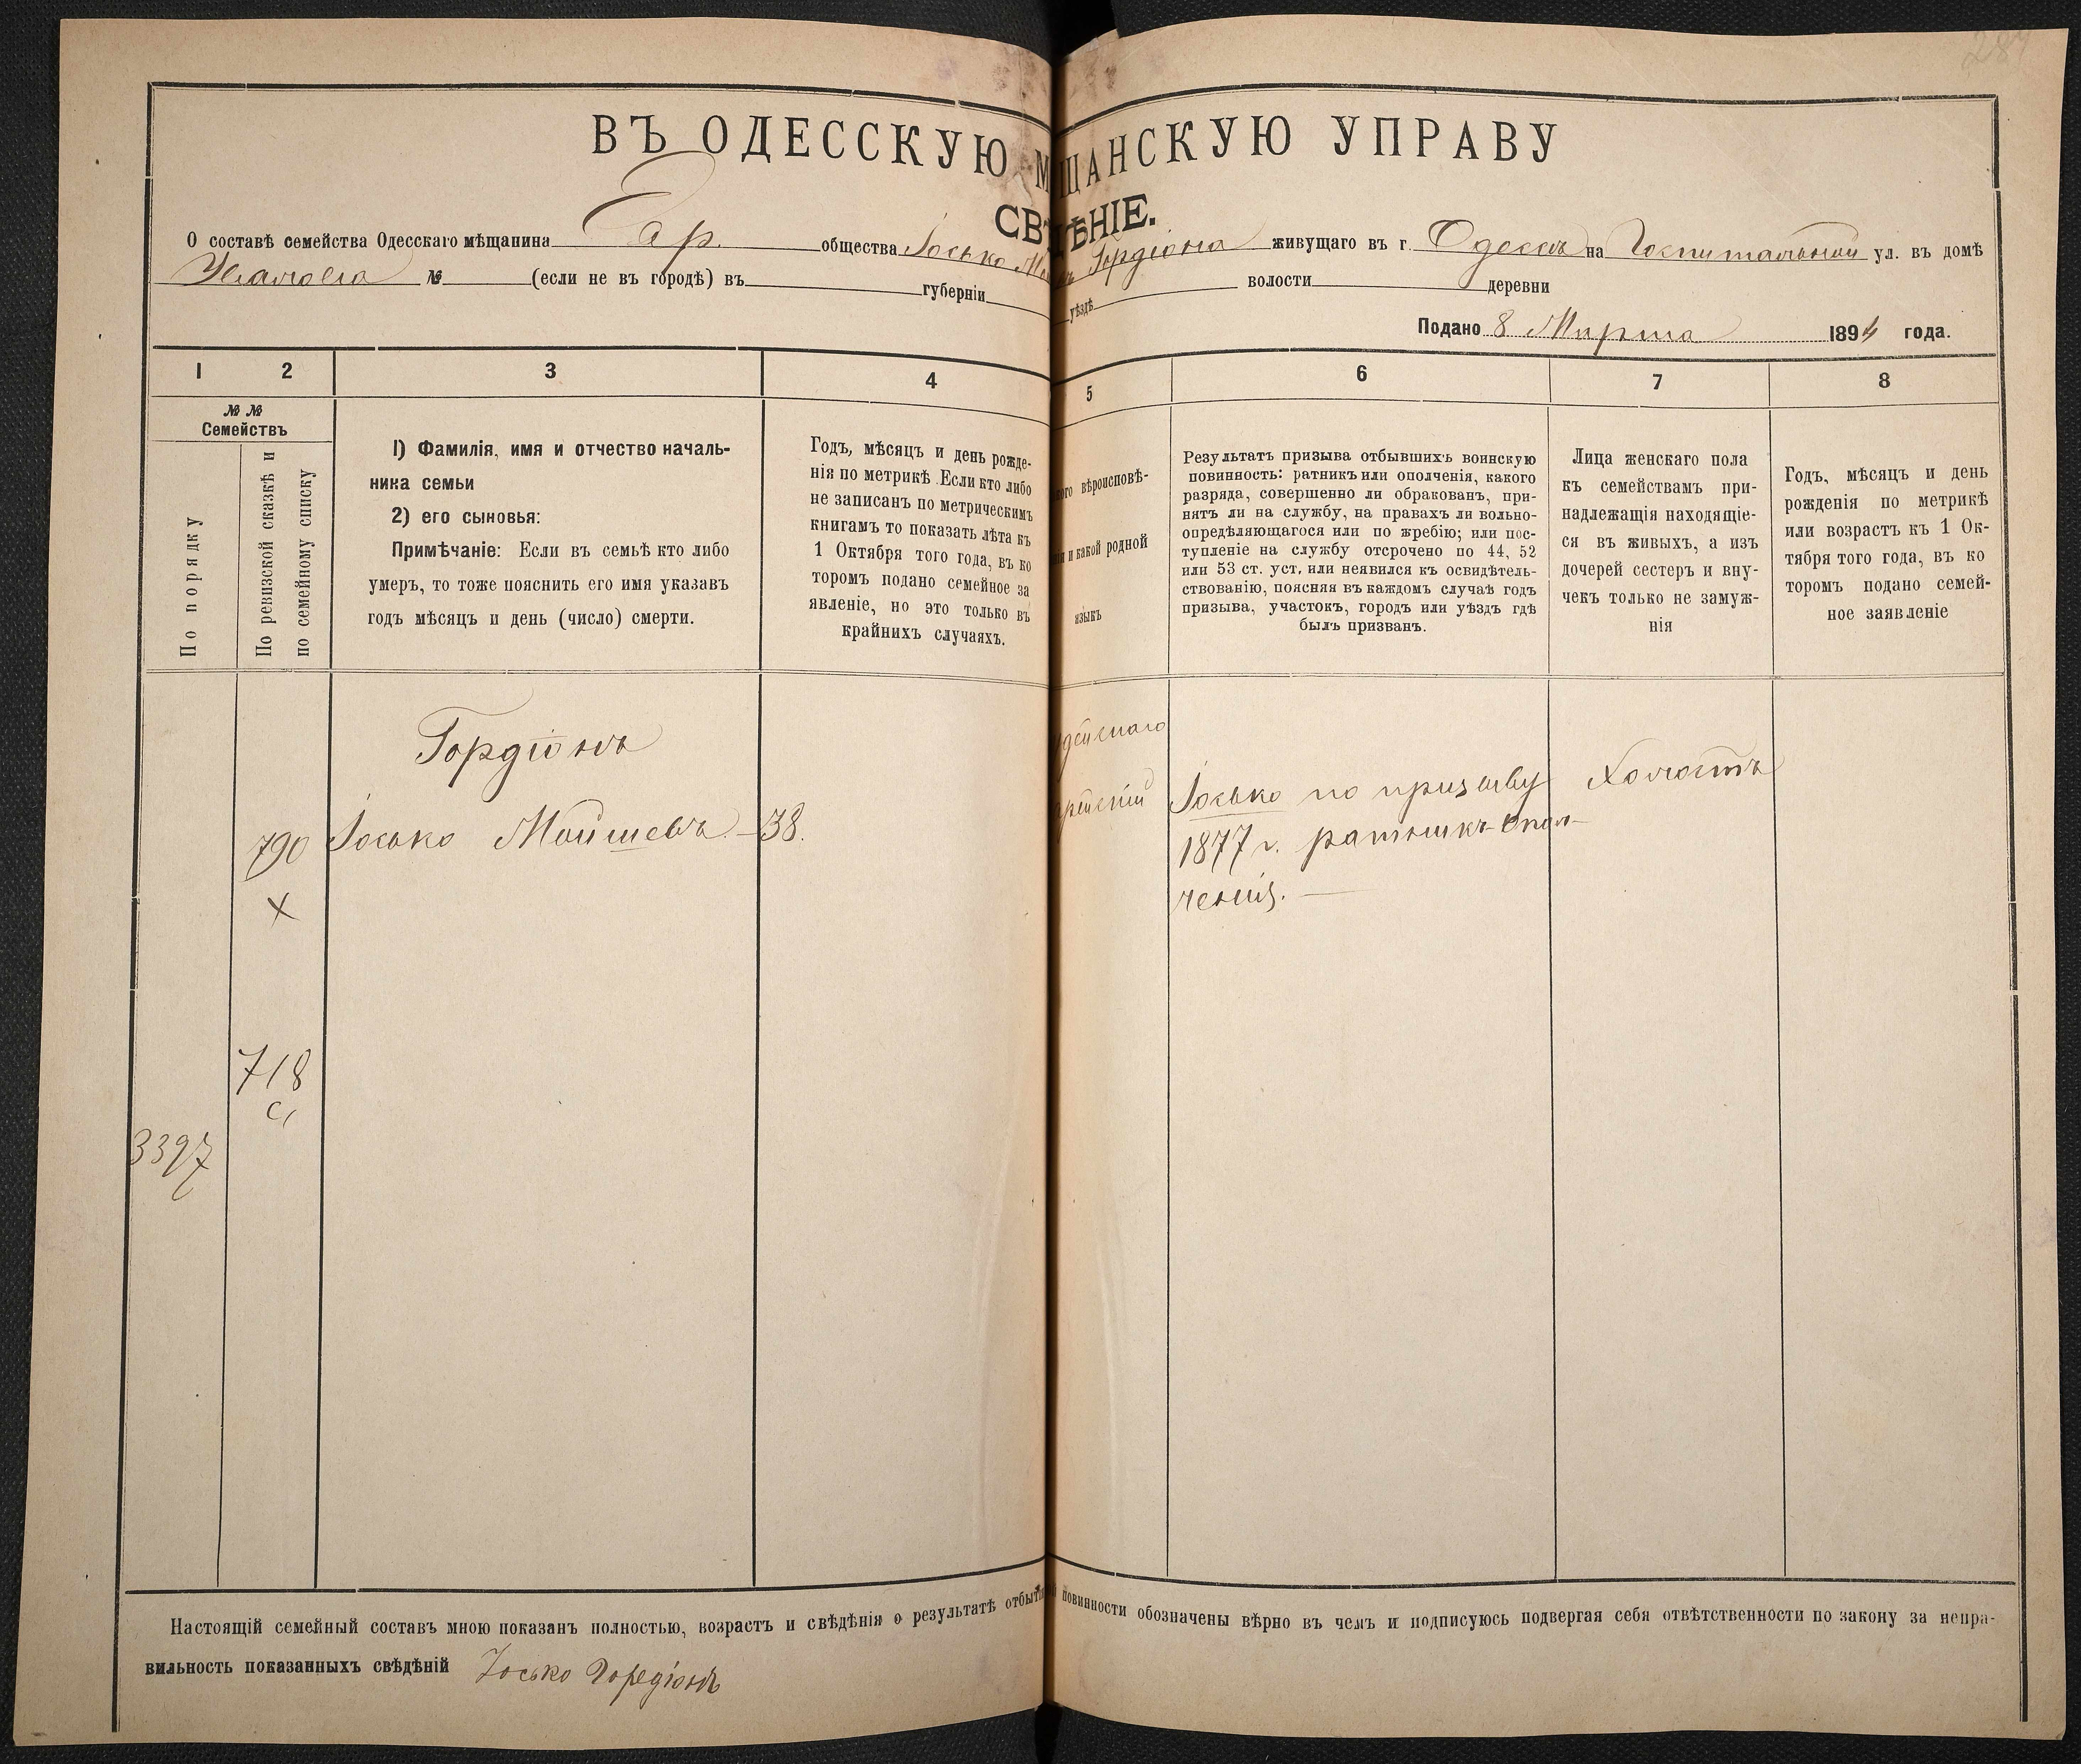 287
ВЪ ОДЕССКУЮ М ЩАНСКУЮ УПРАВУ
СВѢДѢНІЕ.
О составѣ семейства Одесскаго мѣщанина Евр. общества Іосько Гордіона живущаго въ г. Одессѣ на Госпитальной ул. въ домѣ
№ (если не въ городѣ) въ губерніи уѣздѣ волости деревни
Подано 8 Марта 1894 года.
1 2 3 4 5 6 7 8
№ №
Семействъ
По порядку
По ревизской сказкѣ и
по семейному списку
1) Фамилія, имя и отчество началь-
ника семьи
2) его сыновья:
Примѣчаніе: Если въ семьѣ кто либо
умеръ, то тоже пояснить его имя указавъ
годъ мѣсяцъ и день (число) смерти.
Годъ, мѣсяцъ и день рожде-
нія по метрикѣ. Если кто либо
не записанъ по метрическимъ
книгамъ то показать лѣта къ
1 Октября того года, въ ко
торомъ подано семейное за
явленіе, но это только въ
крайнихъ случаяхъ.
ого вѣроисповѣ-
нія и какой родной
языкъ
Результатъ призыва отбывшихъ воинскую
повинность: ратникъ или ополченія, какого
разряда, совершенно ли обракованъ, при-
нятъ ли на службу, на правахъ ли вольно-
опредѣляющагося или по жребію; или пос-
тупленіе на службу отсрочено по 44, 52
или 53 ст. уст. или неявился къ освидѣтель-
ствованію, поясняя въ каждомъ случаѣ годъ
призыва, участокъ, городъ или уѣздъ гдѣ
былъ призванъ.
Лица женскаго пола
къ семействамъ при-
надлежащія находящіе-
ся въ живыхъ, а изъ
дочерей сестеръ и вну-
чекъ только не замуж-
нія
Годъ, мѣсяцъ и день
рожденія по метрикѣ
или возрастъ къ 1 Ок-
тября того года, въ ко
торомъ подано семей-
ное заявленіе
Гордіонъ
790 Іосько Мойшевъ — 38.
х
удейскаго
врейскій
Іосько по призыву
1877 г. ратникъ опол-
ченія. —
Холостъ
718
с,
3397
Настоящій семейный составъ мною показанъ полностью, возрастъ и свѣдѣнія о результатѣ отбытія повинности обозначены вѣрно въ чемъ и подписуюсь подвергая себя отвѣтственности по закону за непра-
вильность показанныхъ свѣдѣній Іосько Горедіонъ